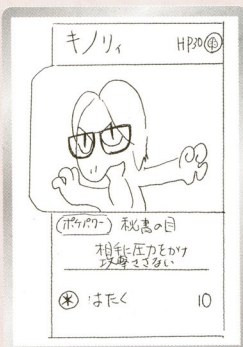 キノリィ HP30
ポケパワー 秘書の目
相手に圧力をかけ
攻撃させない
はたく 10